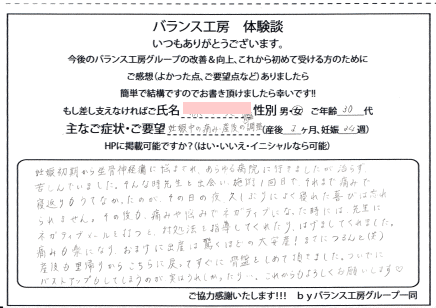 バランス工房 体験談
いつもありがとうございます。
今後のバランス工房グループの改善&向上、これから初めて受ける方のために
ご感想(よかった点、ご要望点など)ありましたら
簡単で結構ですのでお書き頂けましたら幸いです!!
もし差し支えなければご氏名 性別 男・女 ご年齢 30 代
主なご症状・ご要望 妊娠中の痛み・産後の調整 (産後 2 ヶ月、妊娠 週)
HPに掲載可能ですか?(はい・いいえ・イニシャルなら可能)
妊娠初期から坐骨神経痛に悩まされ、あらゆる病院に行きましたが治らず
苦しんでいました。そんな時先生と出会い、施術1回目で、それまで痛みで
寝返りもうてなかったのが、その日の夜久しぶりによく寝れた喜びは忘れ
られません。その後も、痛みや悩みでネガティブになった時には、先生に
メールをおくると、対処法を指導してくれたり、はげましてくれました。
痛みも楽になり、おまけに出産は驚くほどの大安産!まさにつるんと(笑)
産後も里帰りからこちらに戻ってすぐに骨盤としめて頂きました。ついでに
バストアップもしてしまうのが実はうれしかったり…。これからもよろしくお願いします
ご協力感謝いたします!!! byバランス工房グループ一同